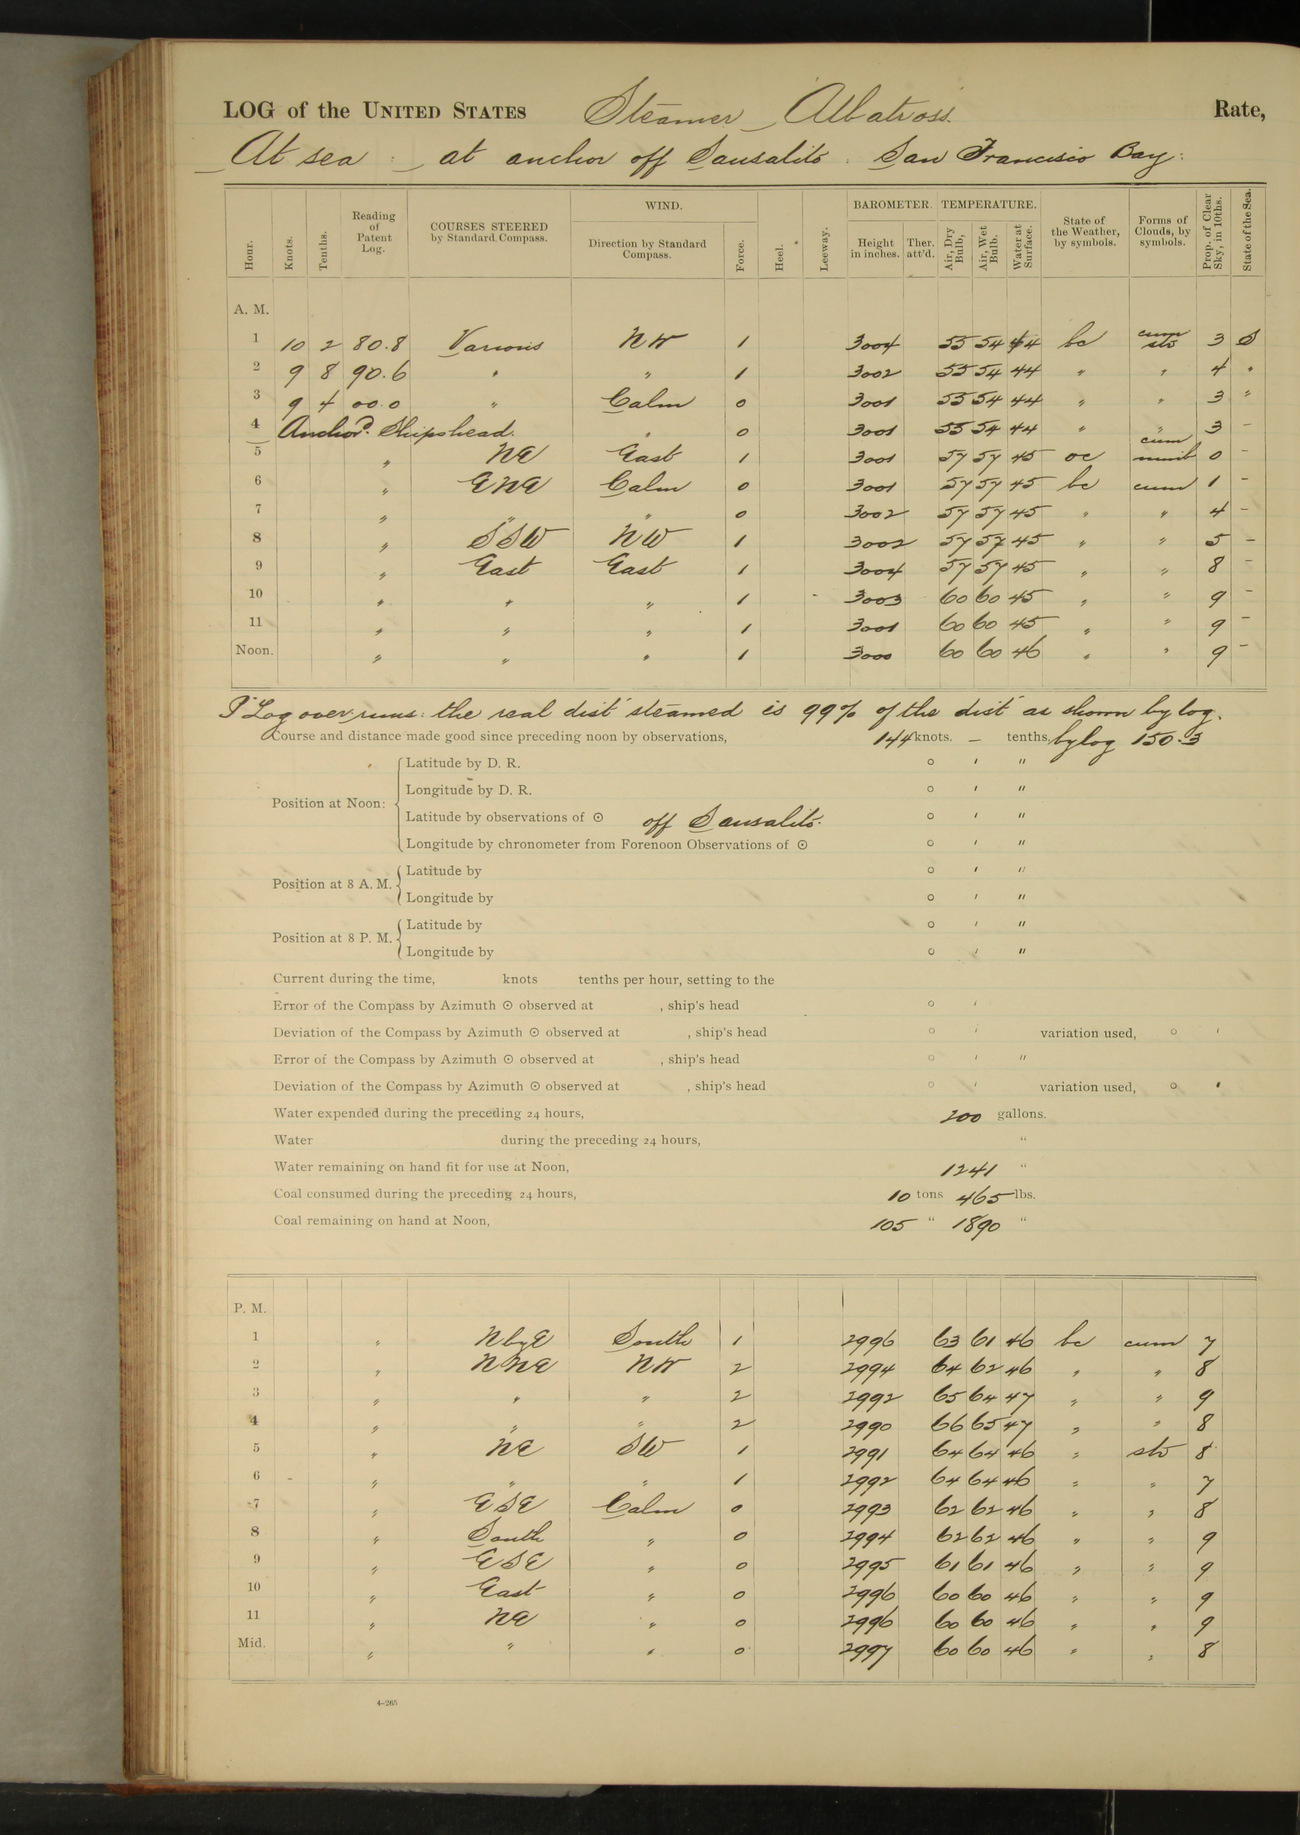 LOG of the UNITED STATES Steamer Albatross. Rate,
At sea : at anchor off Sausalito : San Francisco Bay :
Hour. Knots. Tenths. Reading of Patent Log. COURSES STEERED by Standard Compass. WIND. Direction by Standard Compass. Force. Heel. Leeway. BAROMETER. Height in inches. Ther. att'd. TEMPERATURE. Air, Dry Bulb, Air, Wet Bulb. Water at Surface. State of the Weather, by symbols. Forms of Clouds, by symbols. Prop. of Clear Sky, in 10ths. State of the Sea.
A. M.
1 10 2 80.8 Various NW 1 3004 55 54 44 bc cum str 3 S
2 9 8 90.6 " " 1 3002 55 54 44 " " 4 "
3 9 4 00.0 " Calm 0 3001 55 54 44 " " 3 "
4 Anchor'd. Shipshead. " 0 3001 55 54 44 " " 3 -
5 " NE East 1 3001 57 57 45 oc cum nimb 0 -
6 " ENE Calm 0 3001 57 57 45 bc cum 1 -
7 " " " 0 3002 57 57 45 " " 4 -
8 " SSW NW 1 3002 57 57 45 " " 5 -
9 " East East 1 3004 57 57 45 " " 8 -
10 " " " 1 3003 60 60 45 " " 9 -
11 " " " 1 3001 60 60 45 " " 9 -
Noon. " " " 1 3000 60 60 46 " " 9 -
P Log over runs : the real dist steamed is 99% of the dist as shown by log.
Course and distance made good since preceding noon by observations, 144 knots. — tenths. by log 150.3
Position at Noon:
Latitude by D. R. ° ′ ″
Longitude by D. R. ° ′ ″
Latitude by observations of ☉ off Sausalito. ° ′ ″
Longitude by chronometer from Forenoon Observations of ☉ ° ′ ″
Position at 8 A. M.
Latitude by ° ′ ″
Longitude by ° ′ ″
Position at 8 P. M.
Latitude by ° ′ ″
Longitude by ° ′ ″
Current during the time, knots tenths per hour, setting to the
Error of the Compass by Azimuth ☉ observed at , ship's head ° ′
Deviation of the Compass by Azimuth ☉ observed at , ship's head ° ′ variation used, ° ′
Error of the Compass by Azimuth ☉ observed at , ship's head ° ′ ″
Deviation of the Compass by Azimuth ☉ observed at , ship's head ° ′ variation used, ° ′
Water expended during the preceding 24 hours, 200 gallons.
Water during the preceding 24 hours, "
Water remaining on hand fit for use at Noon, 1241 "
Coal consumed during the preceding 24 hours, 10 tons 465 lbs.
Coal remaining on hand at Noon, 105 " 1890 "
P. M.
1 " NbyE South 1 2996 63 61 46 bc cum 7
2 " NNE NW 2 2994 64 62 46 " " 8
3 " " " 2 2992 65 64 47 " " 9
4 " " " 2 2990 66 65 47 " " 8
5 " NE SW 1 2991 64 64 46 " str 8
6 " " " 1 2992 64 64 46 " " 7
7 " ESE Calm 0 2993 62 62 46 " " 8
8 " South " 0 2994 62 62 46 " " 9
9 " ESE " 0 2995 61 61 46 " " 9
10 " East " 0 2996 60 60 46 " " 9
11 " NE " 0 2996 60 60 46 " " 9
Mid. " " " 0 2997 60 60 46 " " 8
4-265